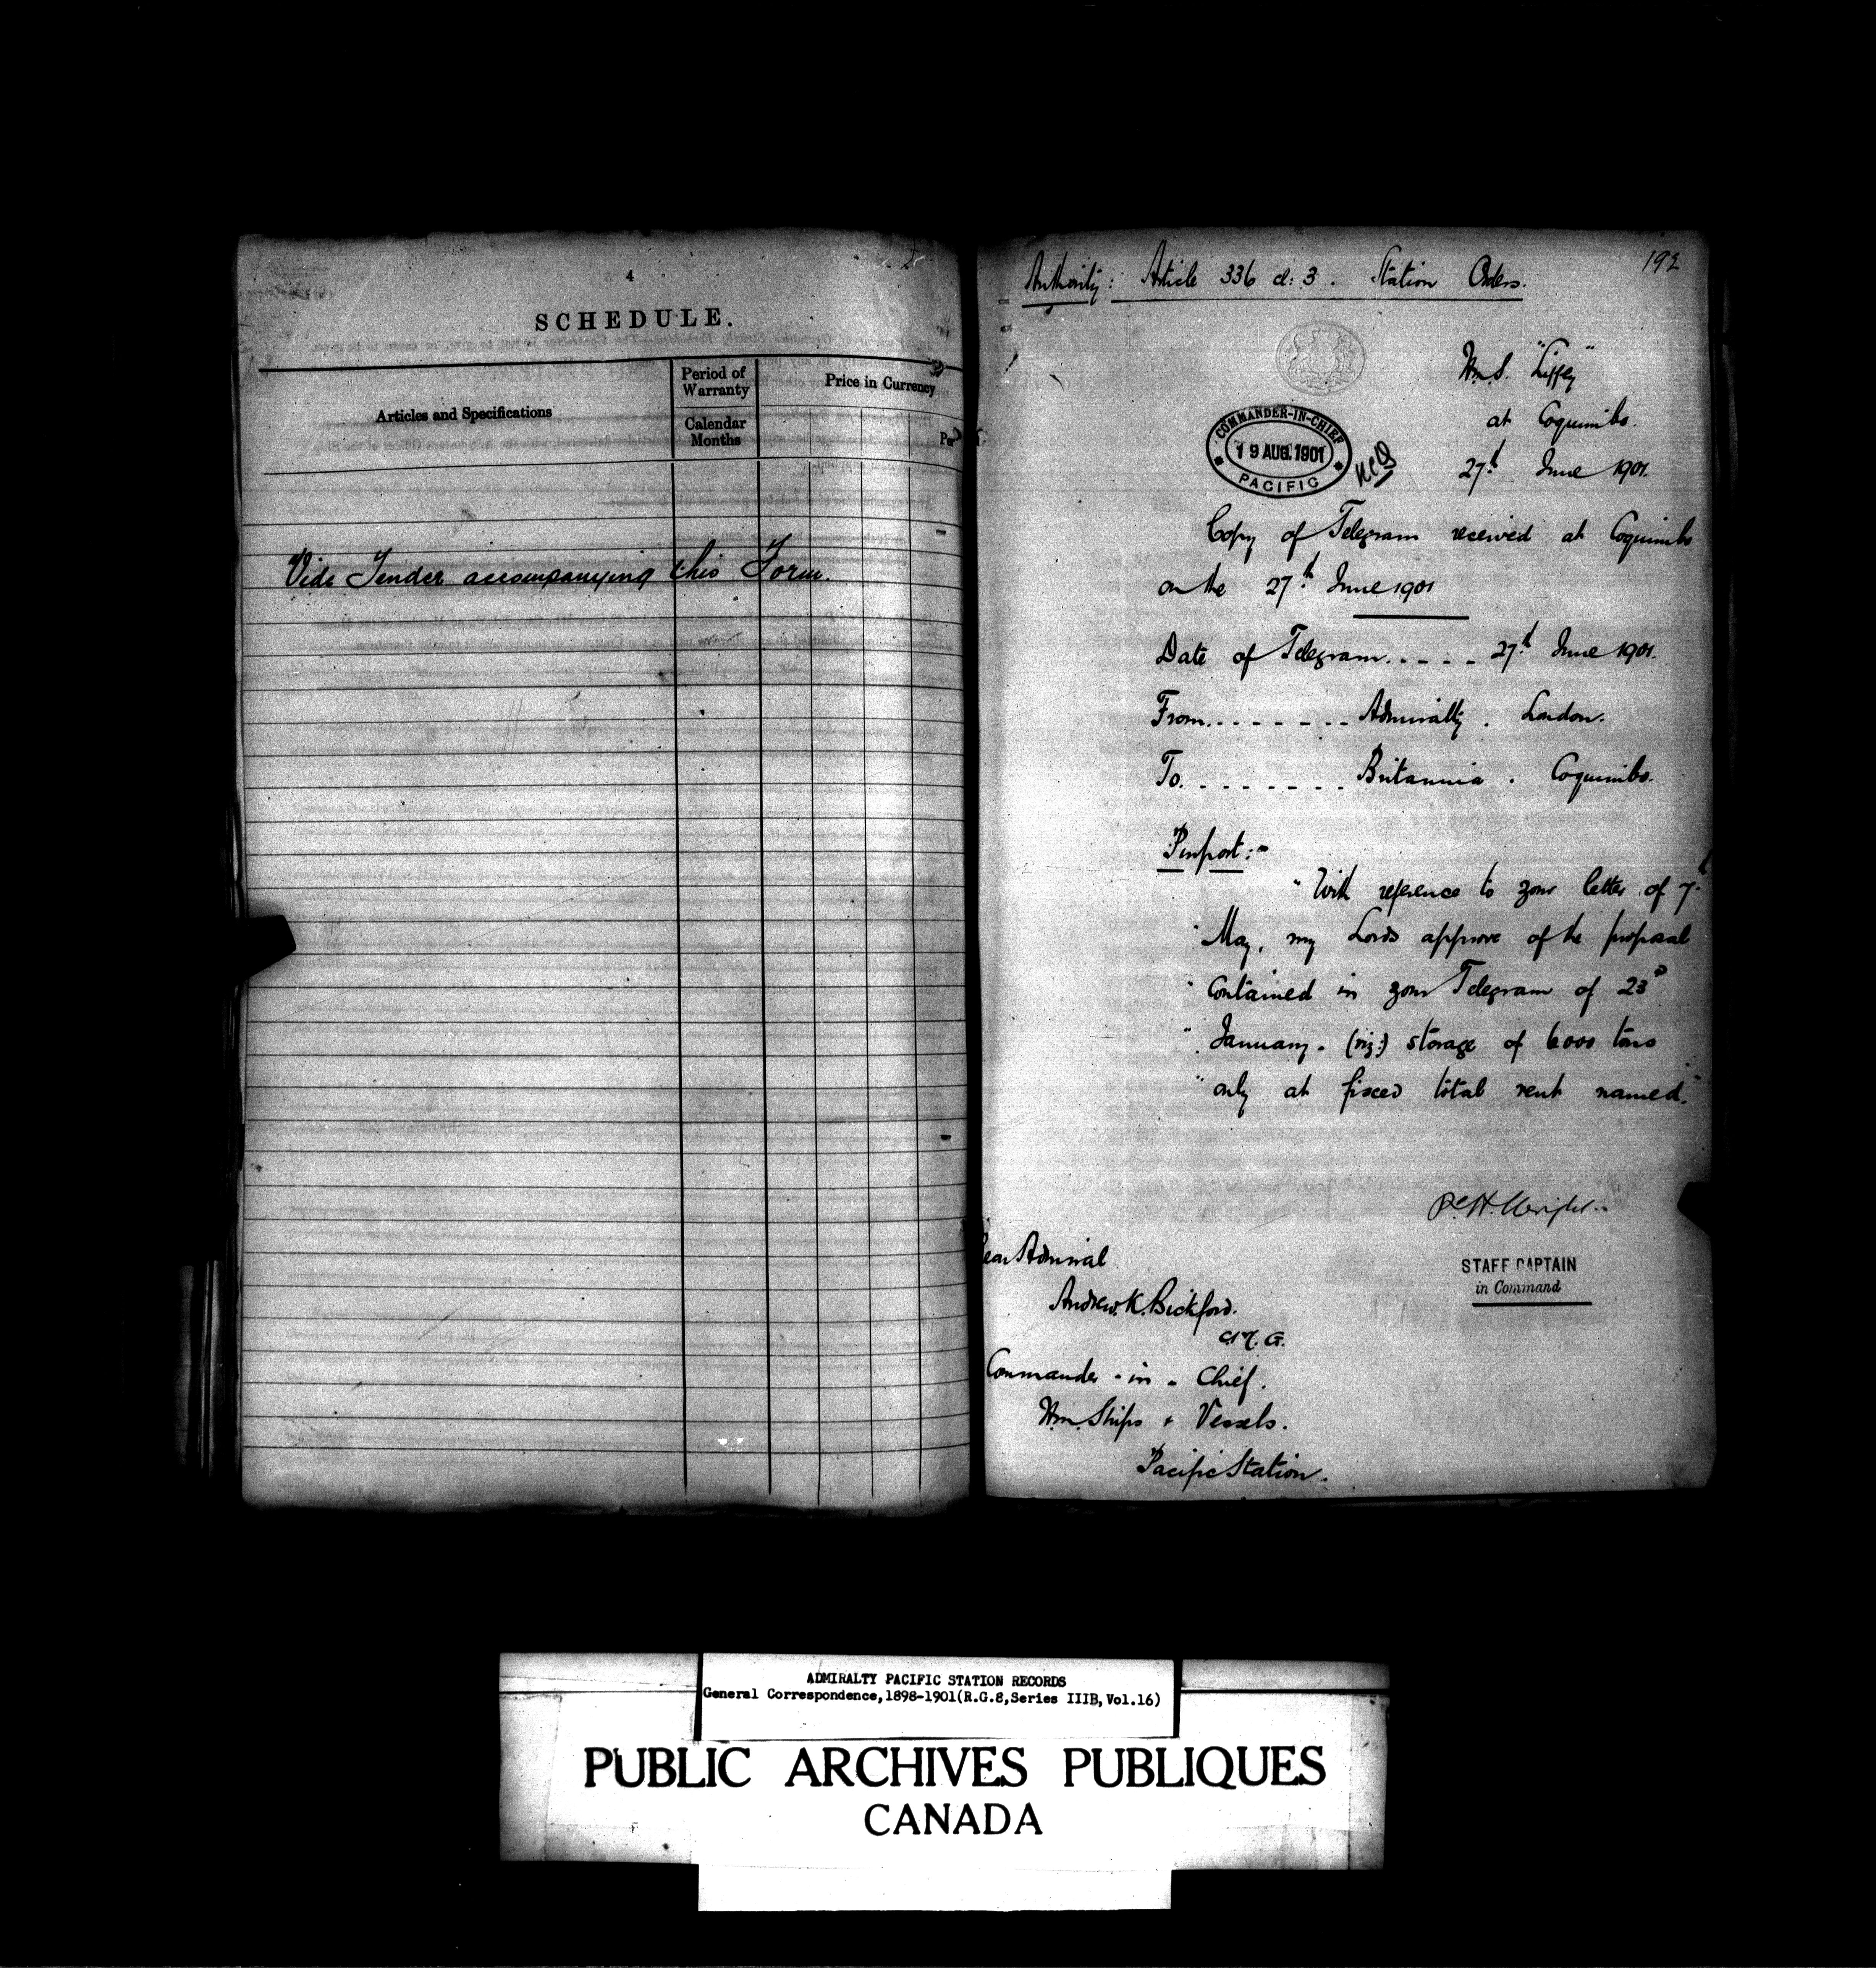 4
SCHEDULE.
Articles and Specifications
Period of Warranty
Calendar Months
Price in Currency
Per
Vide Tender accompanying this Form.
192
Authority: Article 336 cl: 3. Station Orders.
H.M.S. "Liffey"
at Coquimbo.
27th June 1901.
COMMANDER-IN-CHIEF
19 AUG. 1901
PACIFIC
Copy of Telegram received at Coquimbo
on the 27th June 1901
Date of Telegram..... 27th June 1901.
From........ Admiralty. London.
To......... Britannia. Coquimbo.
Purport:-
"With reference to your letter of 7th
"May, my Lords approve of the proposal
"contained in your Telegram of 23rd
"January. (viz:) storage of 6000 tons
"only at fixed total rent named."
STAFF CAPTAIN
in Command
Rear Admiral
Andrew K. Bickford.
C.M.G.
Commander-in-Chief.
H.M. Ships & Vessels.
Pacific Station.
ADMIRALTY PACIFIC STATION RECORDS
General Correspondence,1898-1901(R.G.8,Series IIIB,Vol.16)
PUBLIC ARCHIVES PUBLIQUES
CANADA